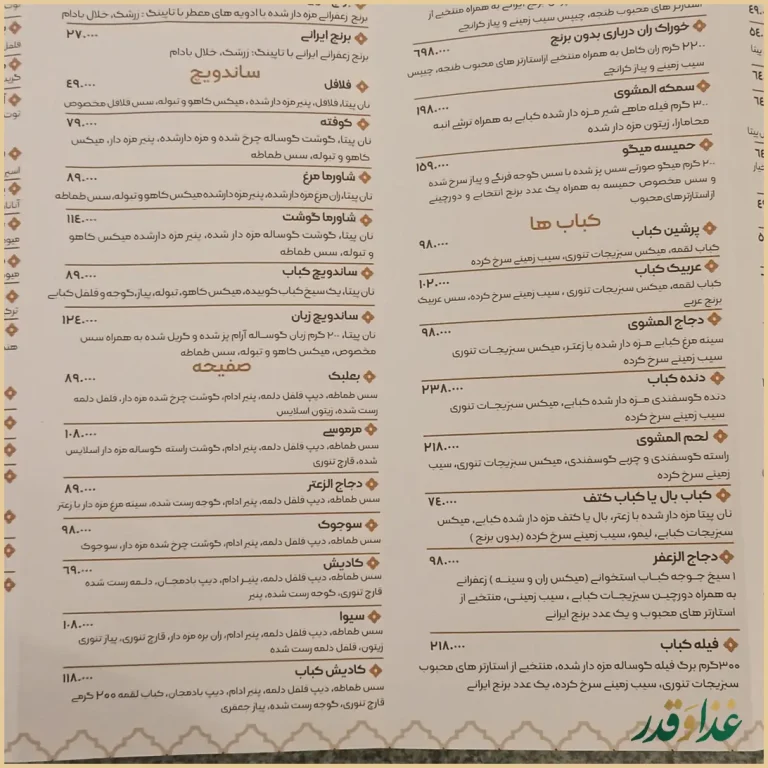 استارترهای محبوب طنجه، چیپس سیب زمینی و پیاز کرانچی
خوراک ران درباری بدون برنج
۶۹۸.۰۰۰
۲۲۰۰ گرم ران کامل به همراه منتخبی ازاستارتر های محبوب طنجه، چیپس
سیب زمینی و پیاز کرانچی
سمکه المشوی
۱۹۸.۰۰۰
۳۰۰ گرم فیله ماهی شیر مزه دار شده کبابی به همراه ترشی انبه
محامارا، زیتون مزه دار شده
حمیسه میگو
۱۵۹.۰۰۰
۲۰۰ گرم میگو صورتی سس پز شده با سس گوجه فرنگی و پیاز سرخ شده
و سس مخصوص حمیسه به همراه یک عدد برنج انتخابی و دورچینی
از استارترهای محبوب
کباب ها
پرشین کباب
۹۸.۰۰۰
کباب لقمه، میکس سبزیجات تنوری، سیب زمینی سرخ کرده
عربیک کباب
۱۰۲.۰۰۰
کباب لقمه، میکس سبزیجات تنوری ، سیب زمینی سرخ کرده، سس عربیک
برنج عربی
دجاج المشوی
۹۸.۰۰۰
سینه مرغ کبابی مزه دار شده با زعتر، میکس سبزیجات تنوری
سیب زمینی سرخ کرده
دنده کباب
۲۳۸.۰۰۰
دنده گوسفندی مزه دار شده کبابی، میکس سبزیجات تنوری
سیب زمینی سرخ کرده
لحم المشوی
۲۱۸.۰۰۰
راسته گوسفندی و چربی گوسفندی، میکس سبزیجات تنوری، سیب
زمینی سرخ کرده
کباب بال یا کباب کتف
۷۴.۰۰۰
نان پیتا مزه دار شده با زعتر، بال یا کتف مزه دار شده کبابی، میکس
سبزیجات کبابی، لیمو، سیب زمینی سرخ کرده (بدون برنج )
دجاج الزعفر
۹۸.۰۰۰
۱ سیخ جوجه کباب استخوانی (میکس ران و سینه ) زعفرانی
به همراه دورچین سبزیجات کبابی ، سیب زمینی، منتخبی از
استارتر های محبوب و یک عدد برنج ایرانی
فیله کباب
۲۱۸.۰۰۰
۳۰۰گرم برگ فیله گوساله مزه دار شده، منتخبی از استارتر های محبوب
سبزیجات تنوری، سیب زمینی سرخ کرده، یک عدد برنج ایرانی
برنج زعفرانی مزه دار شده با ادویه های معطر با تاپینگ : زرشک، خلال بادام
برنج ایرانی
۲۷.۰۰۰
برنج زعفرانی ایرانی با تاپینگ: زرشک، خلال بادام
ساندویچ
فلافل
۴۹.۰۰۰
نان پیتا، فلافل، پنیر مزه دار شده ، میکس کاهو و تبوله، سس فلافل مخصوص
کوفته
۷۹.۰۰۰
نان پیتا، گوشت گوساله چرخ شده و مزه دارشده، پنیر مزه دار، میکس
کاهو و تبوله، سس طماطه
شاورما مرغ
۸۹.۰۰۰
نان پیتا، ران مرغ مزه دار شده، پنیر مزه دارشده میکس کاهو و تبوله، سس طماطه
شاورما گوشت
۱۱۴.۰۰۰
نان پیتا، گوشت گوساله مزه دار شده، پنیر مزه دارشده میکس کاهو
و تبوله، سس طماطه
ساندویچ کباب
۸۹.۰۰۰
نان پیتا، یک سیخ کباب کوبیده، میکس کاهو، تبوله، پیاز، گوجه و فلفل کبابی
ساندویچ زبان
۱۲۴.۰۰۰
نان پیتا، ۲۰۰ گرم زبان گوساله آرام پز شده و گریل شده به همراه سس
مخصوص، میکس کاهو و تبوله، سس طماطه
صفیحه
بعلبک
۸۹.۰۰۰
سس طماطه، دیپ فلفل دلمه، پنیر ادام، گوشت چرخ شده مزه دار، فلفل دلمه
رست شده، زیتون اسلایس
مرموسی
۱۰۸.۰۰۰
سس طماطه، دیپ فلفل دلمه، پنیر ادام، گوشت راسته گوساله مزه دار اسلایس
شده، قارچ تنوری
دجاج الزعتر
۸۹.۰۰۰
سس طماطه، دیپ فلفل دلمه، پنیر ادام، گوجه رست شده، سینه مرغ مزه دار با زعتر
سوجوک
۹۸.۰۰۰
سس طماطه، دیپ فلفل دلمه، پنیر ادام، گوشت چرخ شده مزه دار، سوجوک
کادیش
۶۹.۰۰۰
سس طماطه، دیپ فلفل دلمه، پنیر ادام، دیپ بادمجان، دلمه رست شده
قارچ تنوری، گوجه رست شده، پنیر
سیوا
۱۰۸.۰۰۰
سس طماطه، دیپ فلفل دلمه، پنیر ادام، ران بره مزه دار، قارچ تنوری، پیاز تنوری
زیتون، فلفل دلمه رست شده
کادیش کباب
۱۱۸.۰۰۰
سس طماطه، دیپ فلفل دلمه، پنیر ادام، دیپ بادمجان، کباب لقمه ۲۰۰ گرمی
قارچ تنوری، گوجه رست شده، پیاز جعفری
غذا و قدر